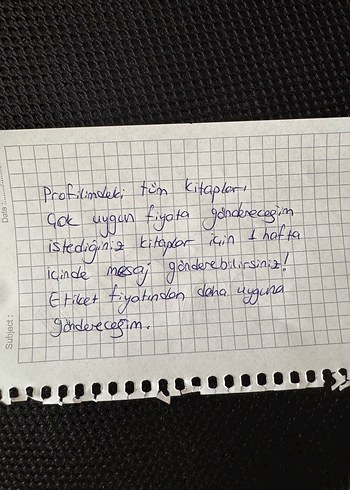 Date:
Subject:
Profilimdeki tüm kitapları
Çok uygun fiyata göndereceğim
istediğiniz kitaplar için 1 hafta
içinde mesaj gönderebilirsiniz!
Etiket fiyatından daha uyguna
göndereceğim.